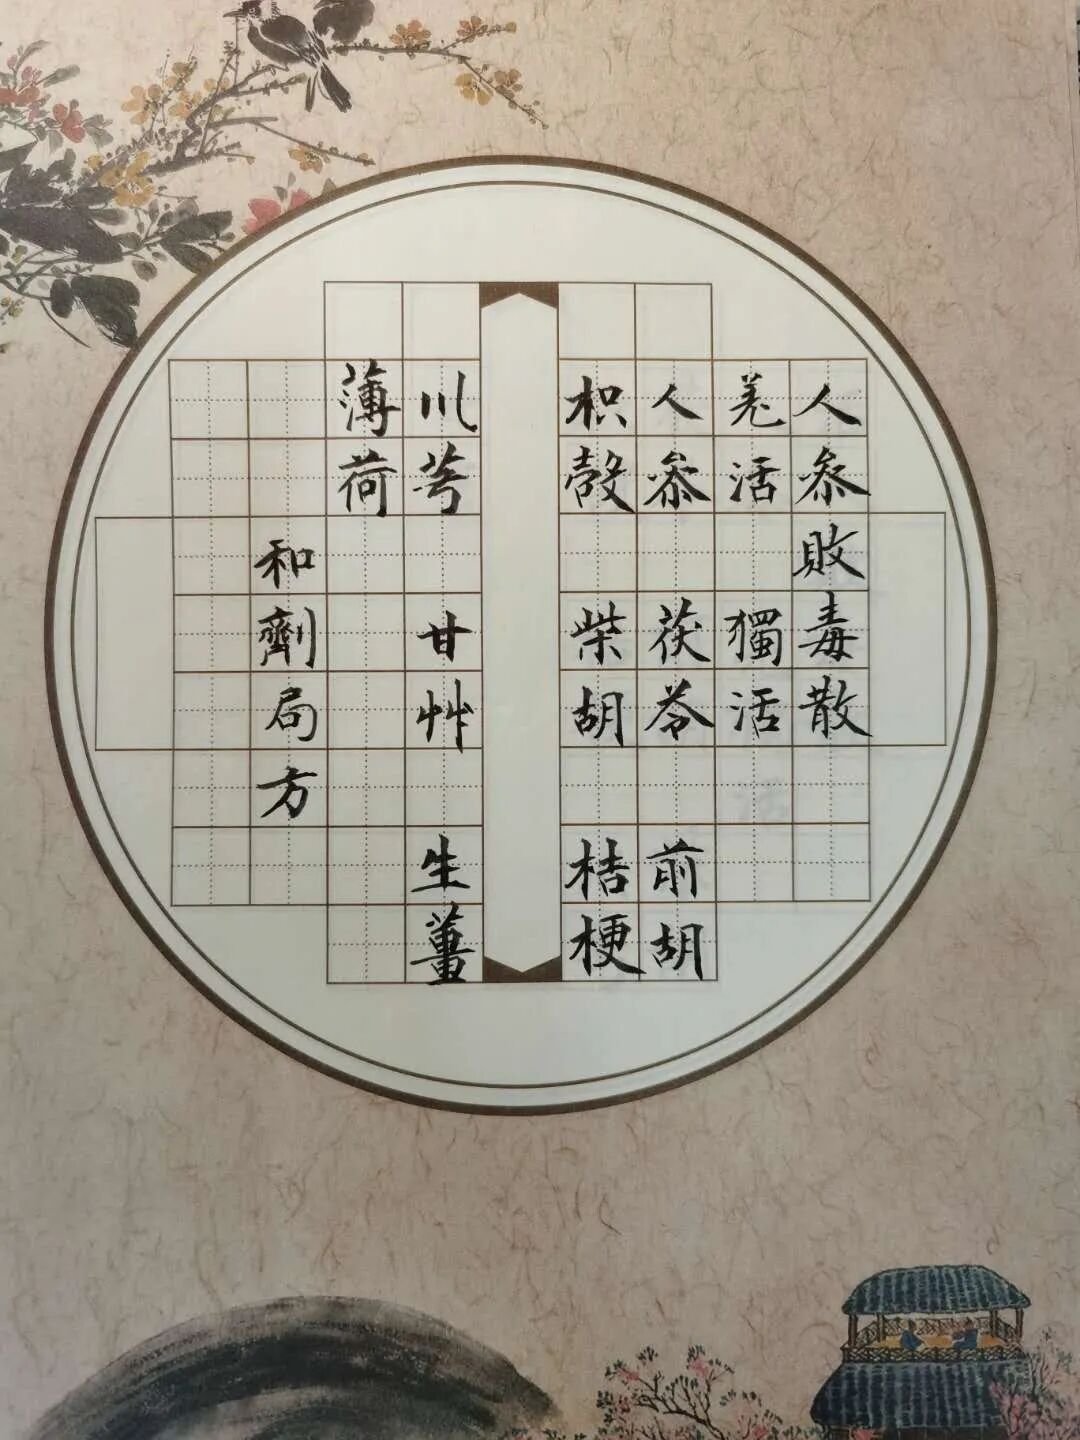 人参敗毒散
羌活 獨活
人参 茯苓 前胡
枳殼 柴胡 桔梗
川芎 甘艸 生薑
薄荷
和劑局方